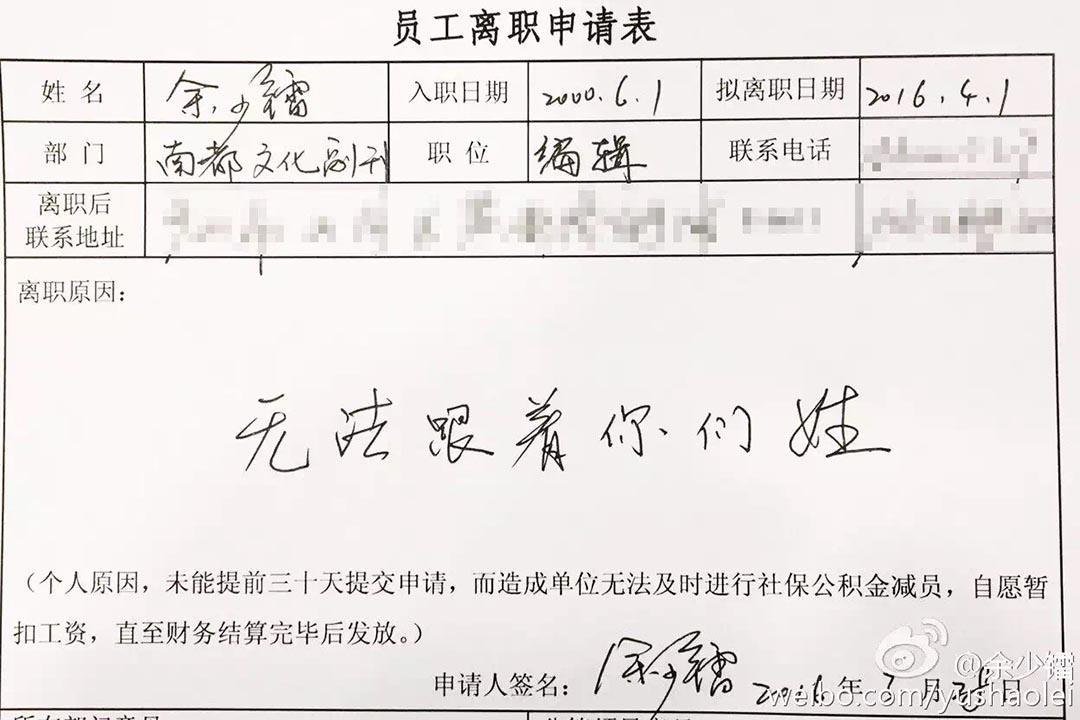 员工离职申请表
姓名 余少镭 入职日期 2000.6.1 拟离职日期 2016.4.1
部门 南都文化副刊 职位 编辑 联系电话
离职后
联系地址
离职原因:
无法跟着你们姓
（个人原因，未能提前三十天提交申请，而造成单位无法及时进行社保公积金减员，自愿暂
扣工资，直至财务结算完毕后发放。）
申请人签名: 余少镭 2016年3月 日
@余少镭
weibo.com/yushaolei